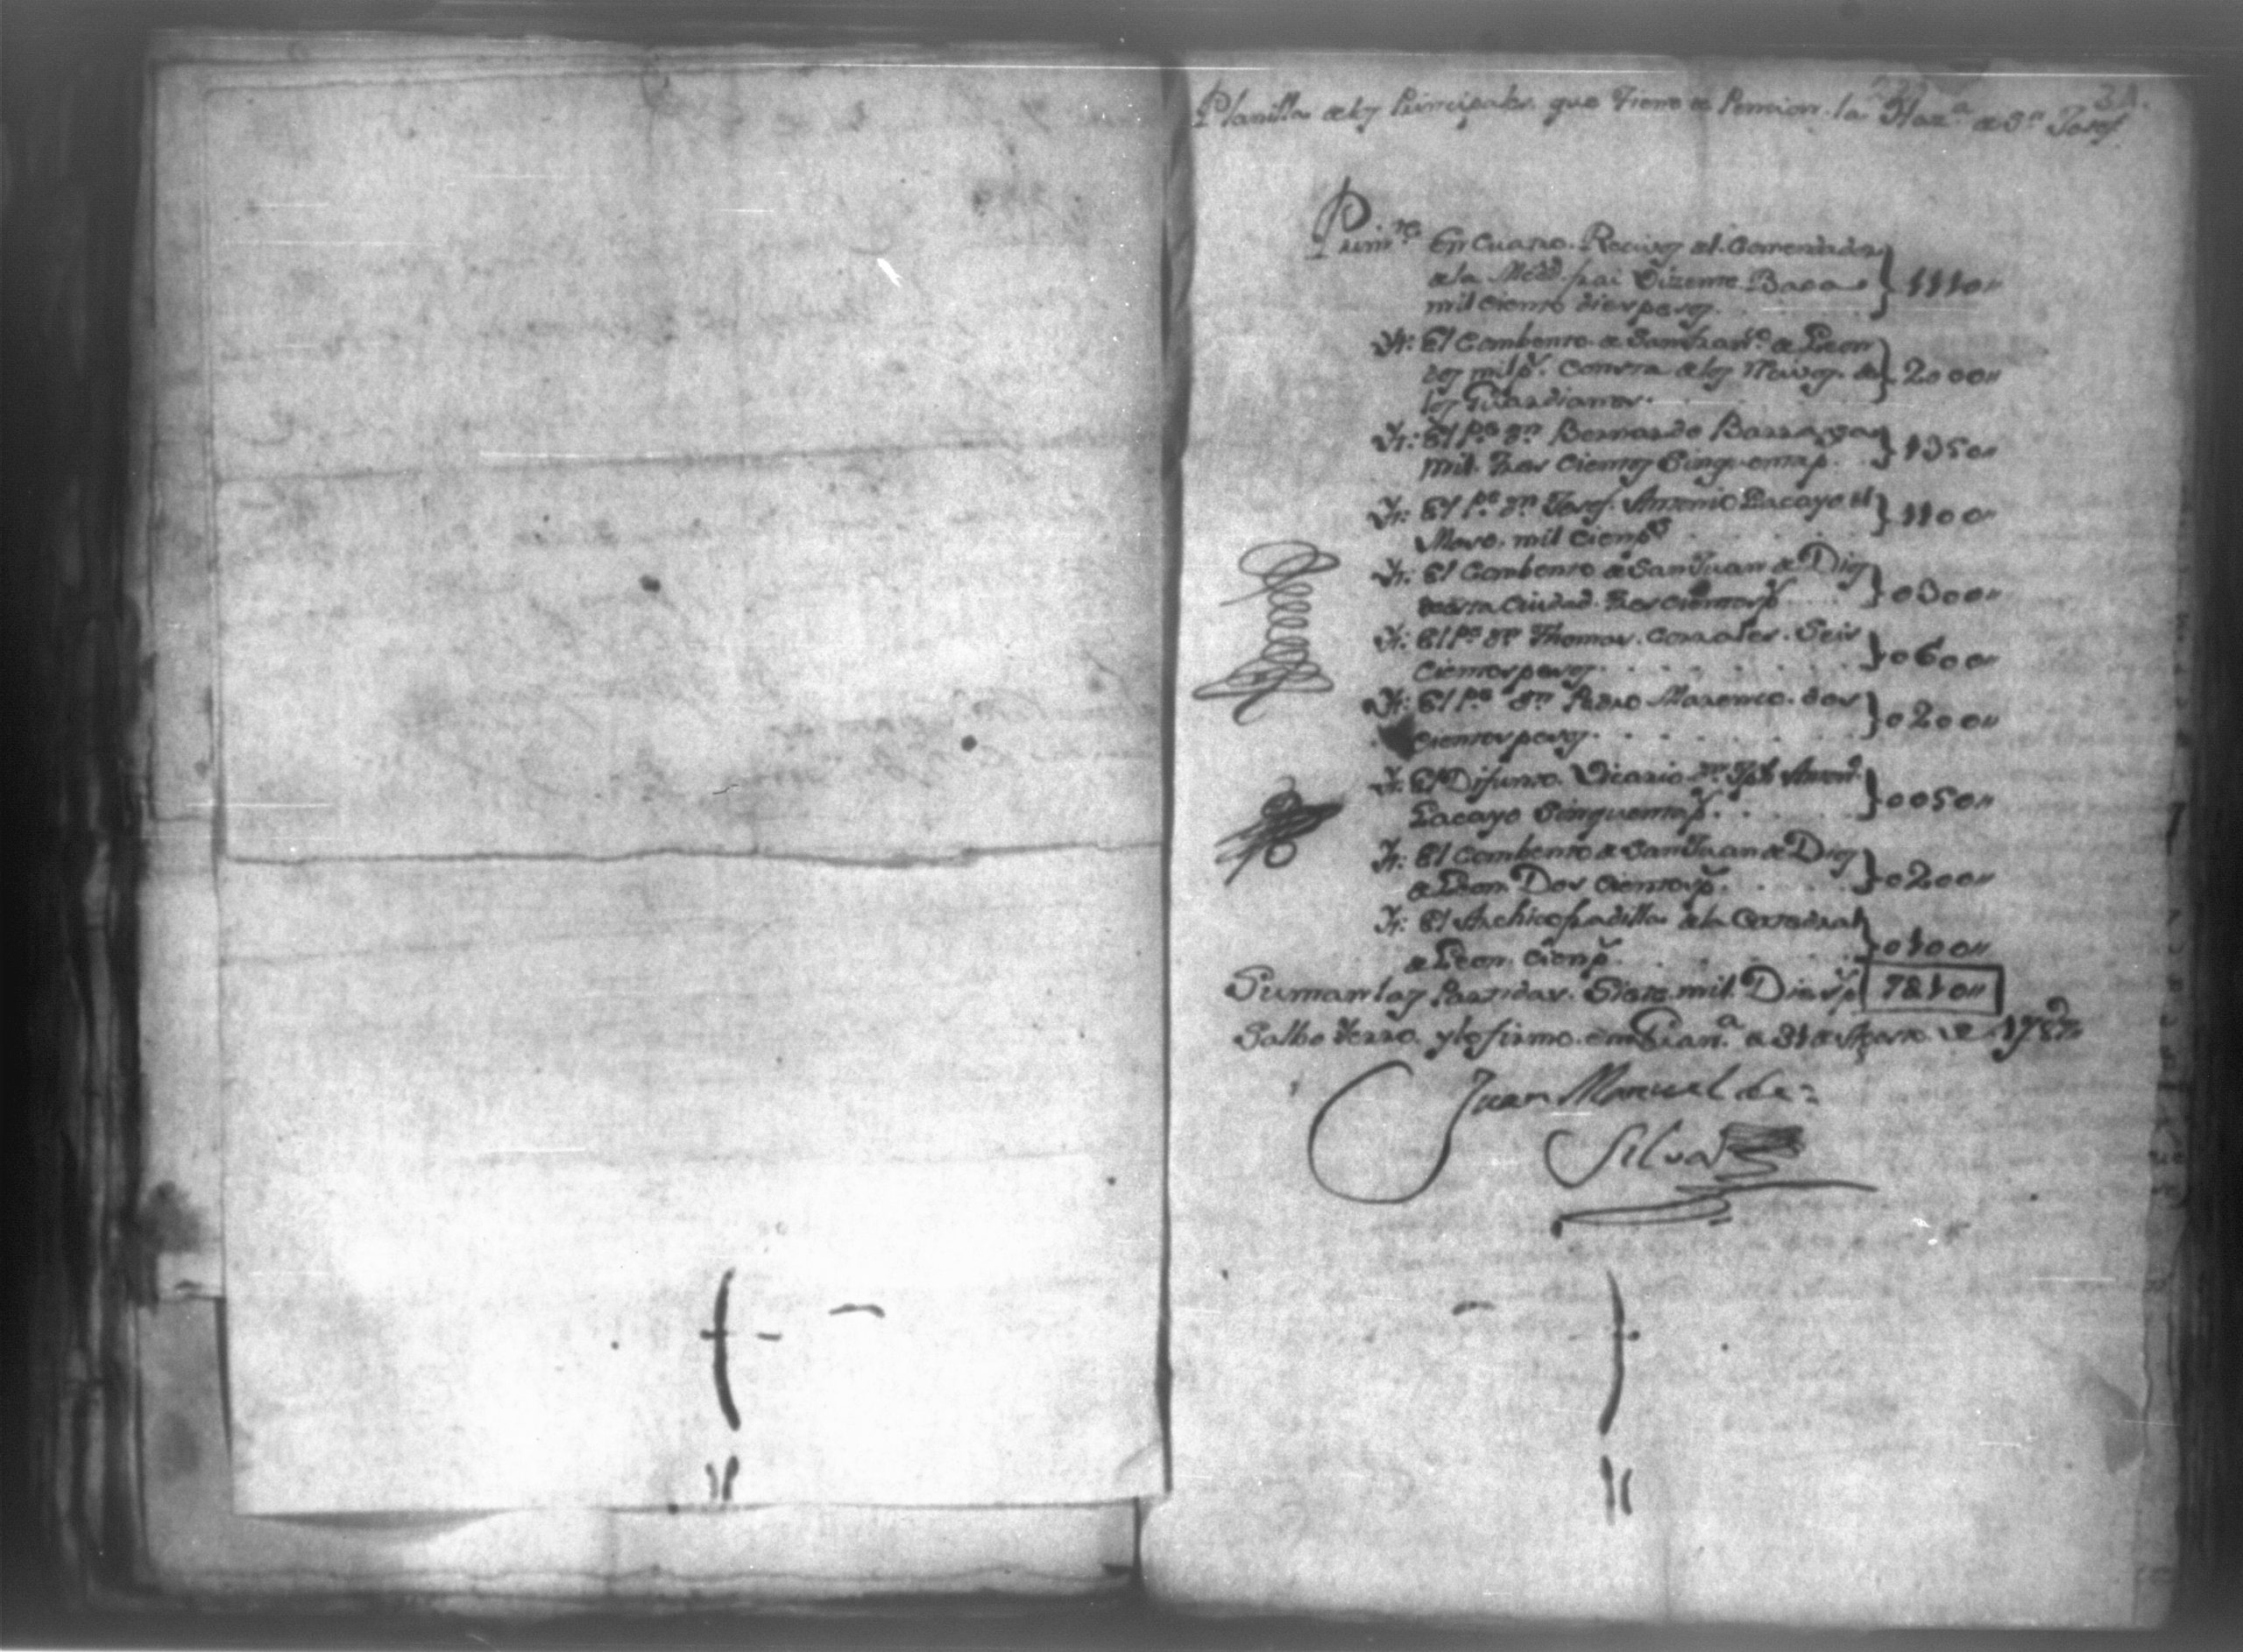 Planilla de los Principales que Tiene de Pencion la Haz.ª de S.n Josef.
Prim.te En Cuatro Recivos el Comendador
de la Mrd. frai Vizente Baca
mil ciento dies pesos
1110
Yt: El Combento de San Fran.co de Leon
dos mil p.s Consta de los Recivos de
los Guardianes
2000
Yt: El P.e D.n Bernardo Barragan
mil tres cientos Cinquenta p.
1350
Yt: El P.e D.n Josef Antonio Lacayo el
Moso mil cien p.s
1100
Yt: El Combento de San Juan de Dios
de esta Ciudad tres cientos p.s
0300
Yt: El P.e D.n Thomas Corrales Seis
Cientos pesos
0600
Yt: El P.e D.n Pedro Marenco dos
cientos pesos
0200
Yt: El Difunto Vicario D.n Jph Anto.
Lacayo Cinquenta p.s
0050
Yt: El Combento de San Juan de Dios
de Leon Dos cientos p.s
0200
Yt: El Archicofradilla de la Catedral
de Leon cien p.s
0100
Suman las Partidas Siete mil Dies p.s 7010
Salbo Yerro y lo firmo en Gran.ª a 31 de Agosto de 1787
Juan Manuel de
Silva